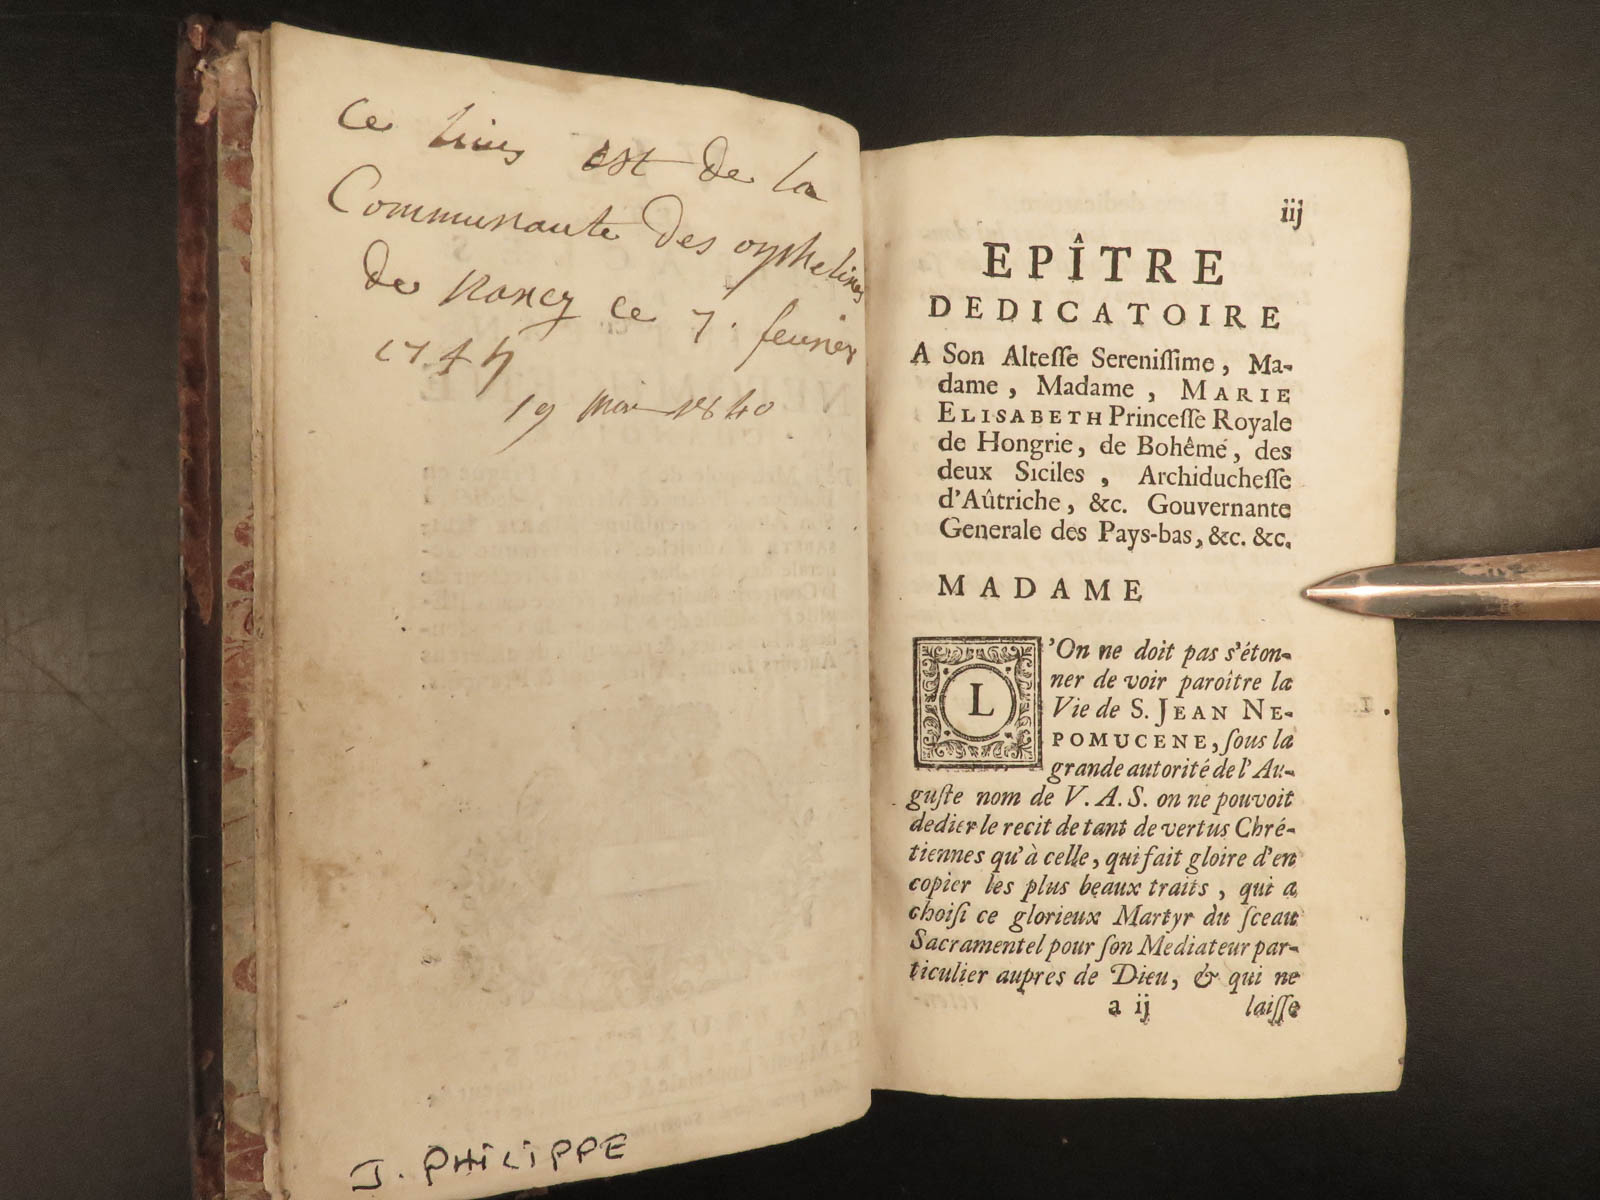 ce livre est de la
Communaute des orphelines
de Nancy ce 7. feurier
174
19 mai 1840
J. PHILIPPE
iij
EPÎTRE
DEDICATOIRE
A Son Alteſſe Sereniſſime, Ma-
dame, Madame, MARIE
ELISABETH Princeſſe Royale
de Hongrie, de Bohême, des
deux Siciles, Archiducheſſe
d'Aûtriche, &c. Gouvernante
Generale des Pays-bas, &c. &c.
MADAME
L'On ne doit pas s'éton-
ner de voir paroître la
Vie de S. JEAN NE-
POMUCENE, ſous la
grande autorité de l'Au-
guſte nom de V. A. S. on ne pouvoit
dedier le recit de tant de vertus Chré-
tiennes qu'à celle, qui fait gloire d'en
copier les plus beaux traits, qui a
choiſi ce glorieux Martyr du ſceau
Sacramentel pour ſon Mediateur par-
ticulier aupres de Dieu, & qui ne
a ij laiſſe